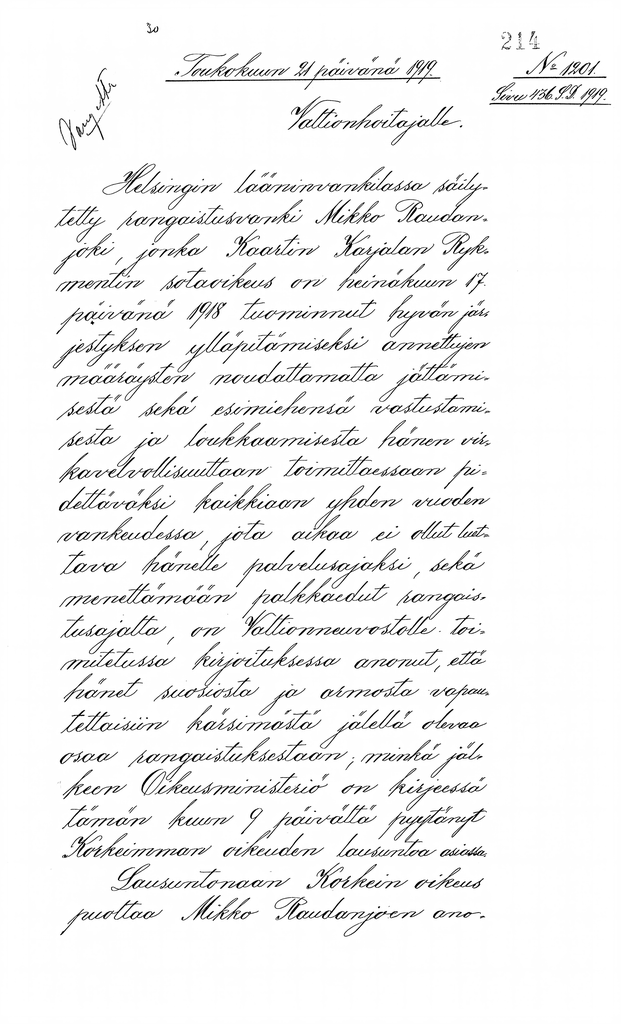 30
214
Toukokuun 21 päivänä 1919.
No 1201.
Sivu 436. S.D. 1919.
Valtionhoitajalle.
Helsingin lääninvankilassa säily-
tetty rangaistusvanki Mikko Raudan-
joki, jonka Kaartin Karjalan Ryk-
mentin sotaoikeus on heinäkuun 17.
päivänä 1918 tuominnut hyvän jär-
jestyksen ylläpitämiseksi annettujen
määräysten noudattamatta jättämi-
sestä sekä esimiehensä vastustami-
sesta ja loukkaamisesta hänen vir-
kavelvollisuuttaan toimittaessaan pi-
dettäväksi kaikkiaan yhden vuoden
vankeudessa, jota aikaa ei ollut luet-
tava hänelle palvelusajaksi, sekä
menettämään palkkaedut rangais-
tusajalta, on Valtioneuvostolle toi-
mitetussa kirjoituksessa anonut, että
hänet suosiosta ja armosta vapau-
tettaisiin kärsimästä jälellä olevaa
osaa rangaistuksestaan; minkä jäl-
keen Oikeusministeriö on kirjeessä
tämän kuun 9 päivältä pyytänyt
Korkeimman oikeuden lausuntoa asiassa.
Lausuntonaan Korkein oikeus
puoltaa Mikko Raudanjoen ano-